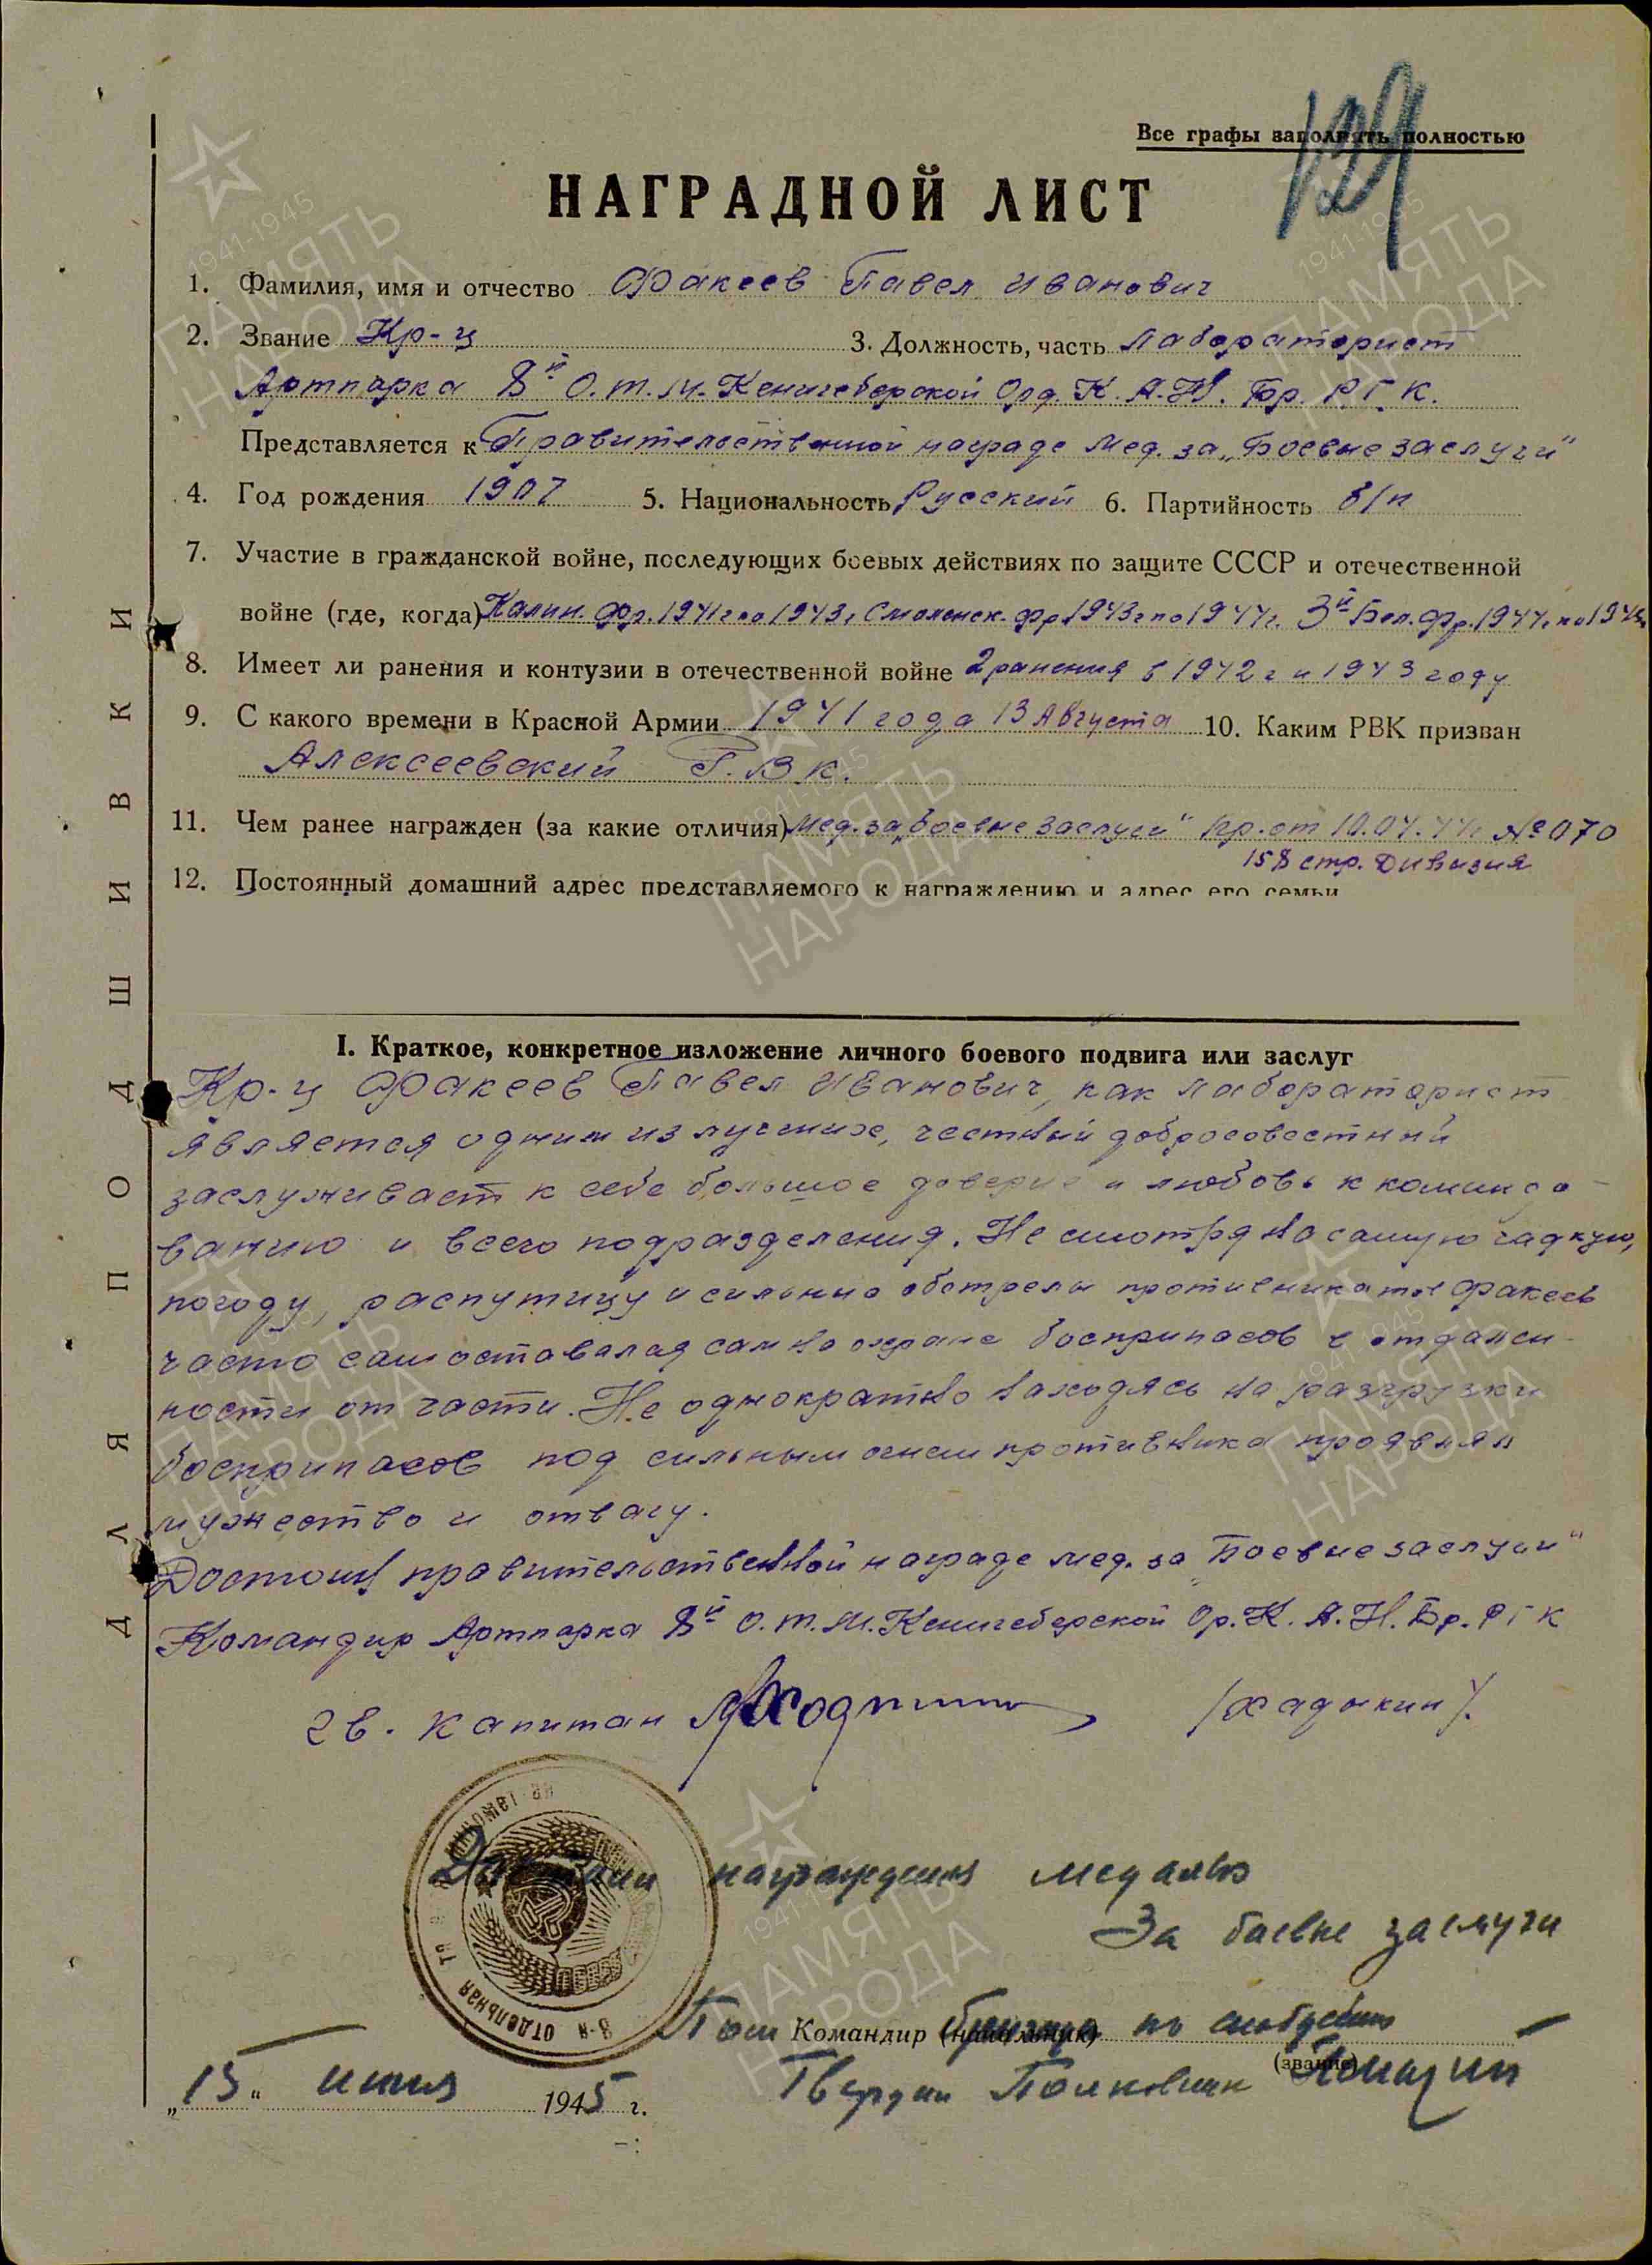 Все графы заполнять полностью
129
НАГРАДНОЙ ЛИСТ
1. Фамилия, имя и отчество Факеев Павел Иванович
2. Звание Кр-ц 3. Должность, часть лабораторист
Артпарка 8й О.т.м. Кенигсберской Орд. К. А.Н. Бр. Р.Г.К.
Представляется к Правительственной награде мед. за „Боевые заслуги"
4. Год рождения 1907 5. Национальность Русский 6. Партийность б/п
7. Участие в гражданской войне, последующих боевых действиях по защите СССР и отечественной
войне (где, когда) Калин. фр. 1941г по 1943г Смоленск. фр 1943г по 1944г. 3й Бел. фр. 1944г по 1945г
8. Имеет ли ранения и контузии в отечественной войне 2 ранения в 1942 г и 1943 году
9. С какого времени в Красной Армии 1941 года 13 Августа 10. Каким РВК призван
Алексеевский Г.В.К.
11. Чем ранее награжден (за какие отличия) мед. за „боевые заслуги" пр. от 10.04.44г № 070
158 стр. Дивизия
12. Постоянный домашний адрес представляемого к награждению и адрес его семьи
I. Краткое, конкретное изложение личного боевого подвига или заслуг
Кр-ц Факеев Павел Иванович, как лабораторист
является одним из лучших, честный добросовестный
заслуживает к себе большое доверие и любовь к командо-
ванию и всего подразделения. Не смотря на самую гадкую,
погоду, распутицу и сильные обстрелы противника тов Факеев
часто сам оставался сам на охране боеприпасов в отдален-
ности от части. Не однократно находясь на разгрузки
боеприпасов под сильным огнем противника проявлял
мужество и отвагу.
Достоин правительственной награде мед. за „Боевые заслуги"
Командир Артпарка 8й О.т.м. Кенигсберской Ор. К. А.Н. Бр. РГК
гв. капитан /Хадыкин/.
Достоин награждения медалью
За боевые заслуги
Пом Командир (начальник) бригады по снабжению
(звание)
Гвардии Полковник
„15" июня 1945 г.
8-я ОТДЕЛЬНАЯ
ДЛЯ ПОДШИВКИ
1941-1945
ПАМЯТЬ
НАРОДА